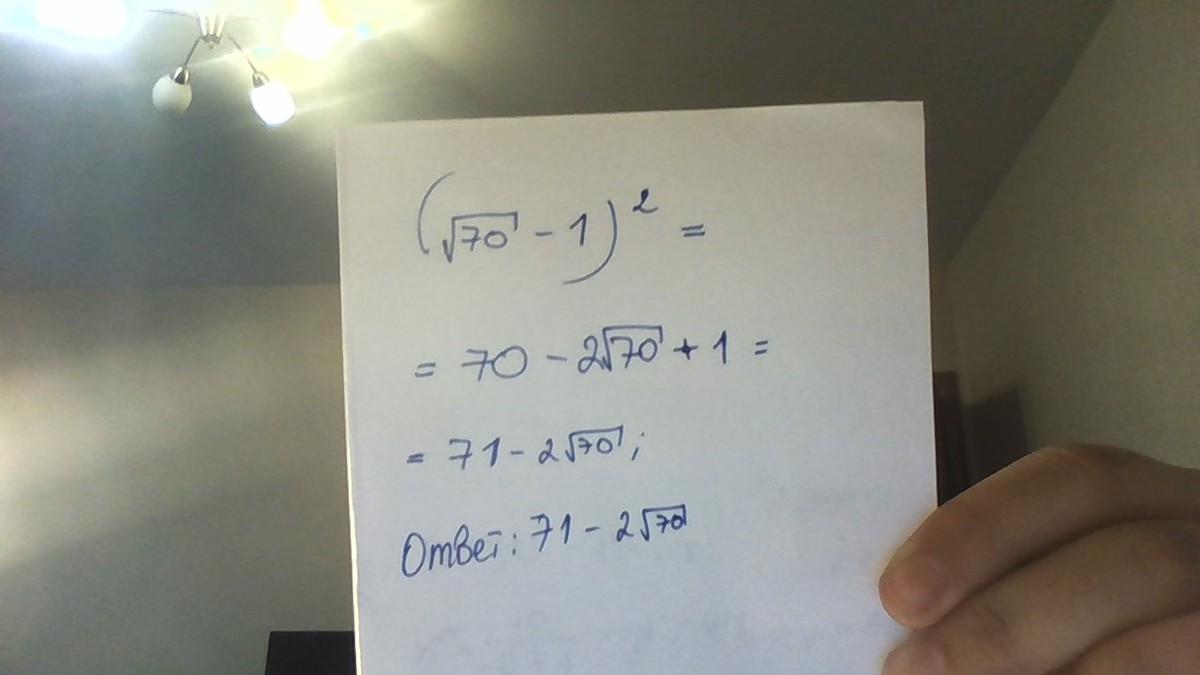 (√70 - 1)² =
= 70 - 2√70 + 1 =
= 71 - 2√70;
Ответ: 71 - 2√70